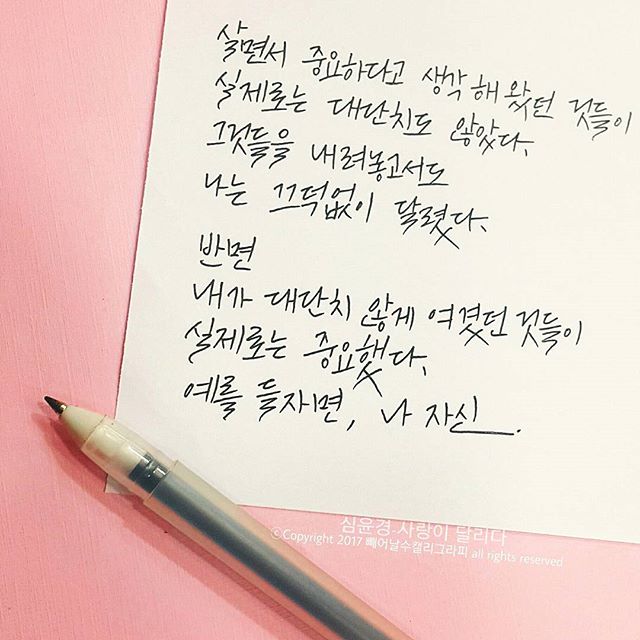 살면서 중요하다고 생각해 왔던 것들이
실제로는 대단치도 않았다.
그것들을 내려놓고서도
나는 끄덕없이 달렸다.
반면
내가 대단치 않게 여겼던 것들이
실제로는 중요했다.
예를 들자면, 나 자신.
심윤경·사랑이 달리다
©Copyright 2017 빼어날수캘리그라피 all rights reserved